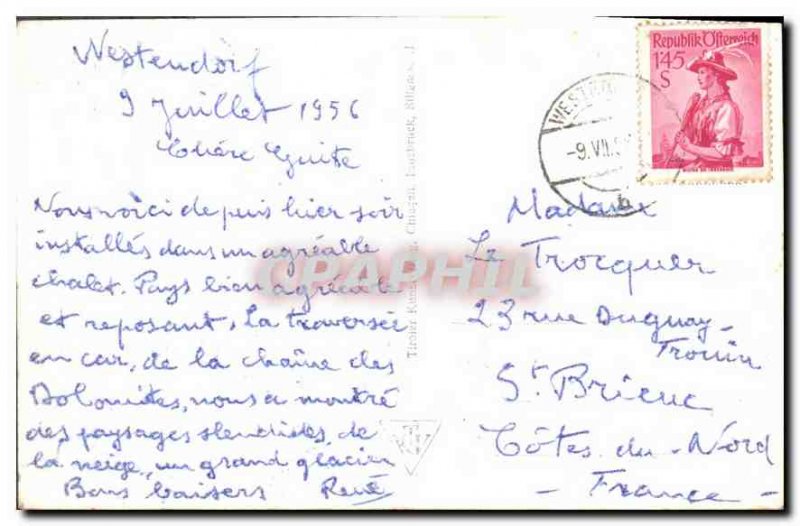 Westendorf
9 Juillet 1956
Chère Guite
Nous voici depuis hier soir
installés dans un agréable
chalet. Pays bien agréable
et reposant, la traversée
en car, de la chaîne des
Dolomites, nous a montré
des paysages slendides, de
la neige, un grand glacier
Bons baisers René
CPAPHIL
Tiroler Innsbruck,
Republik Österreich
1'45
S
WESTEN
-9.VII.5
b
Madame
Le Trocquer
23 rue Duguay-
Trouin
St Brieuc
Côtes-du-Nord
- France -